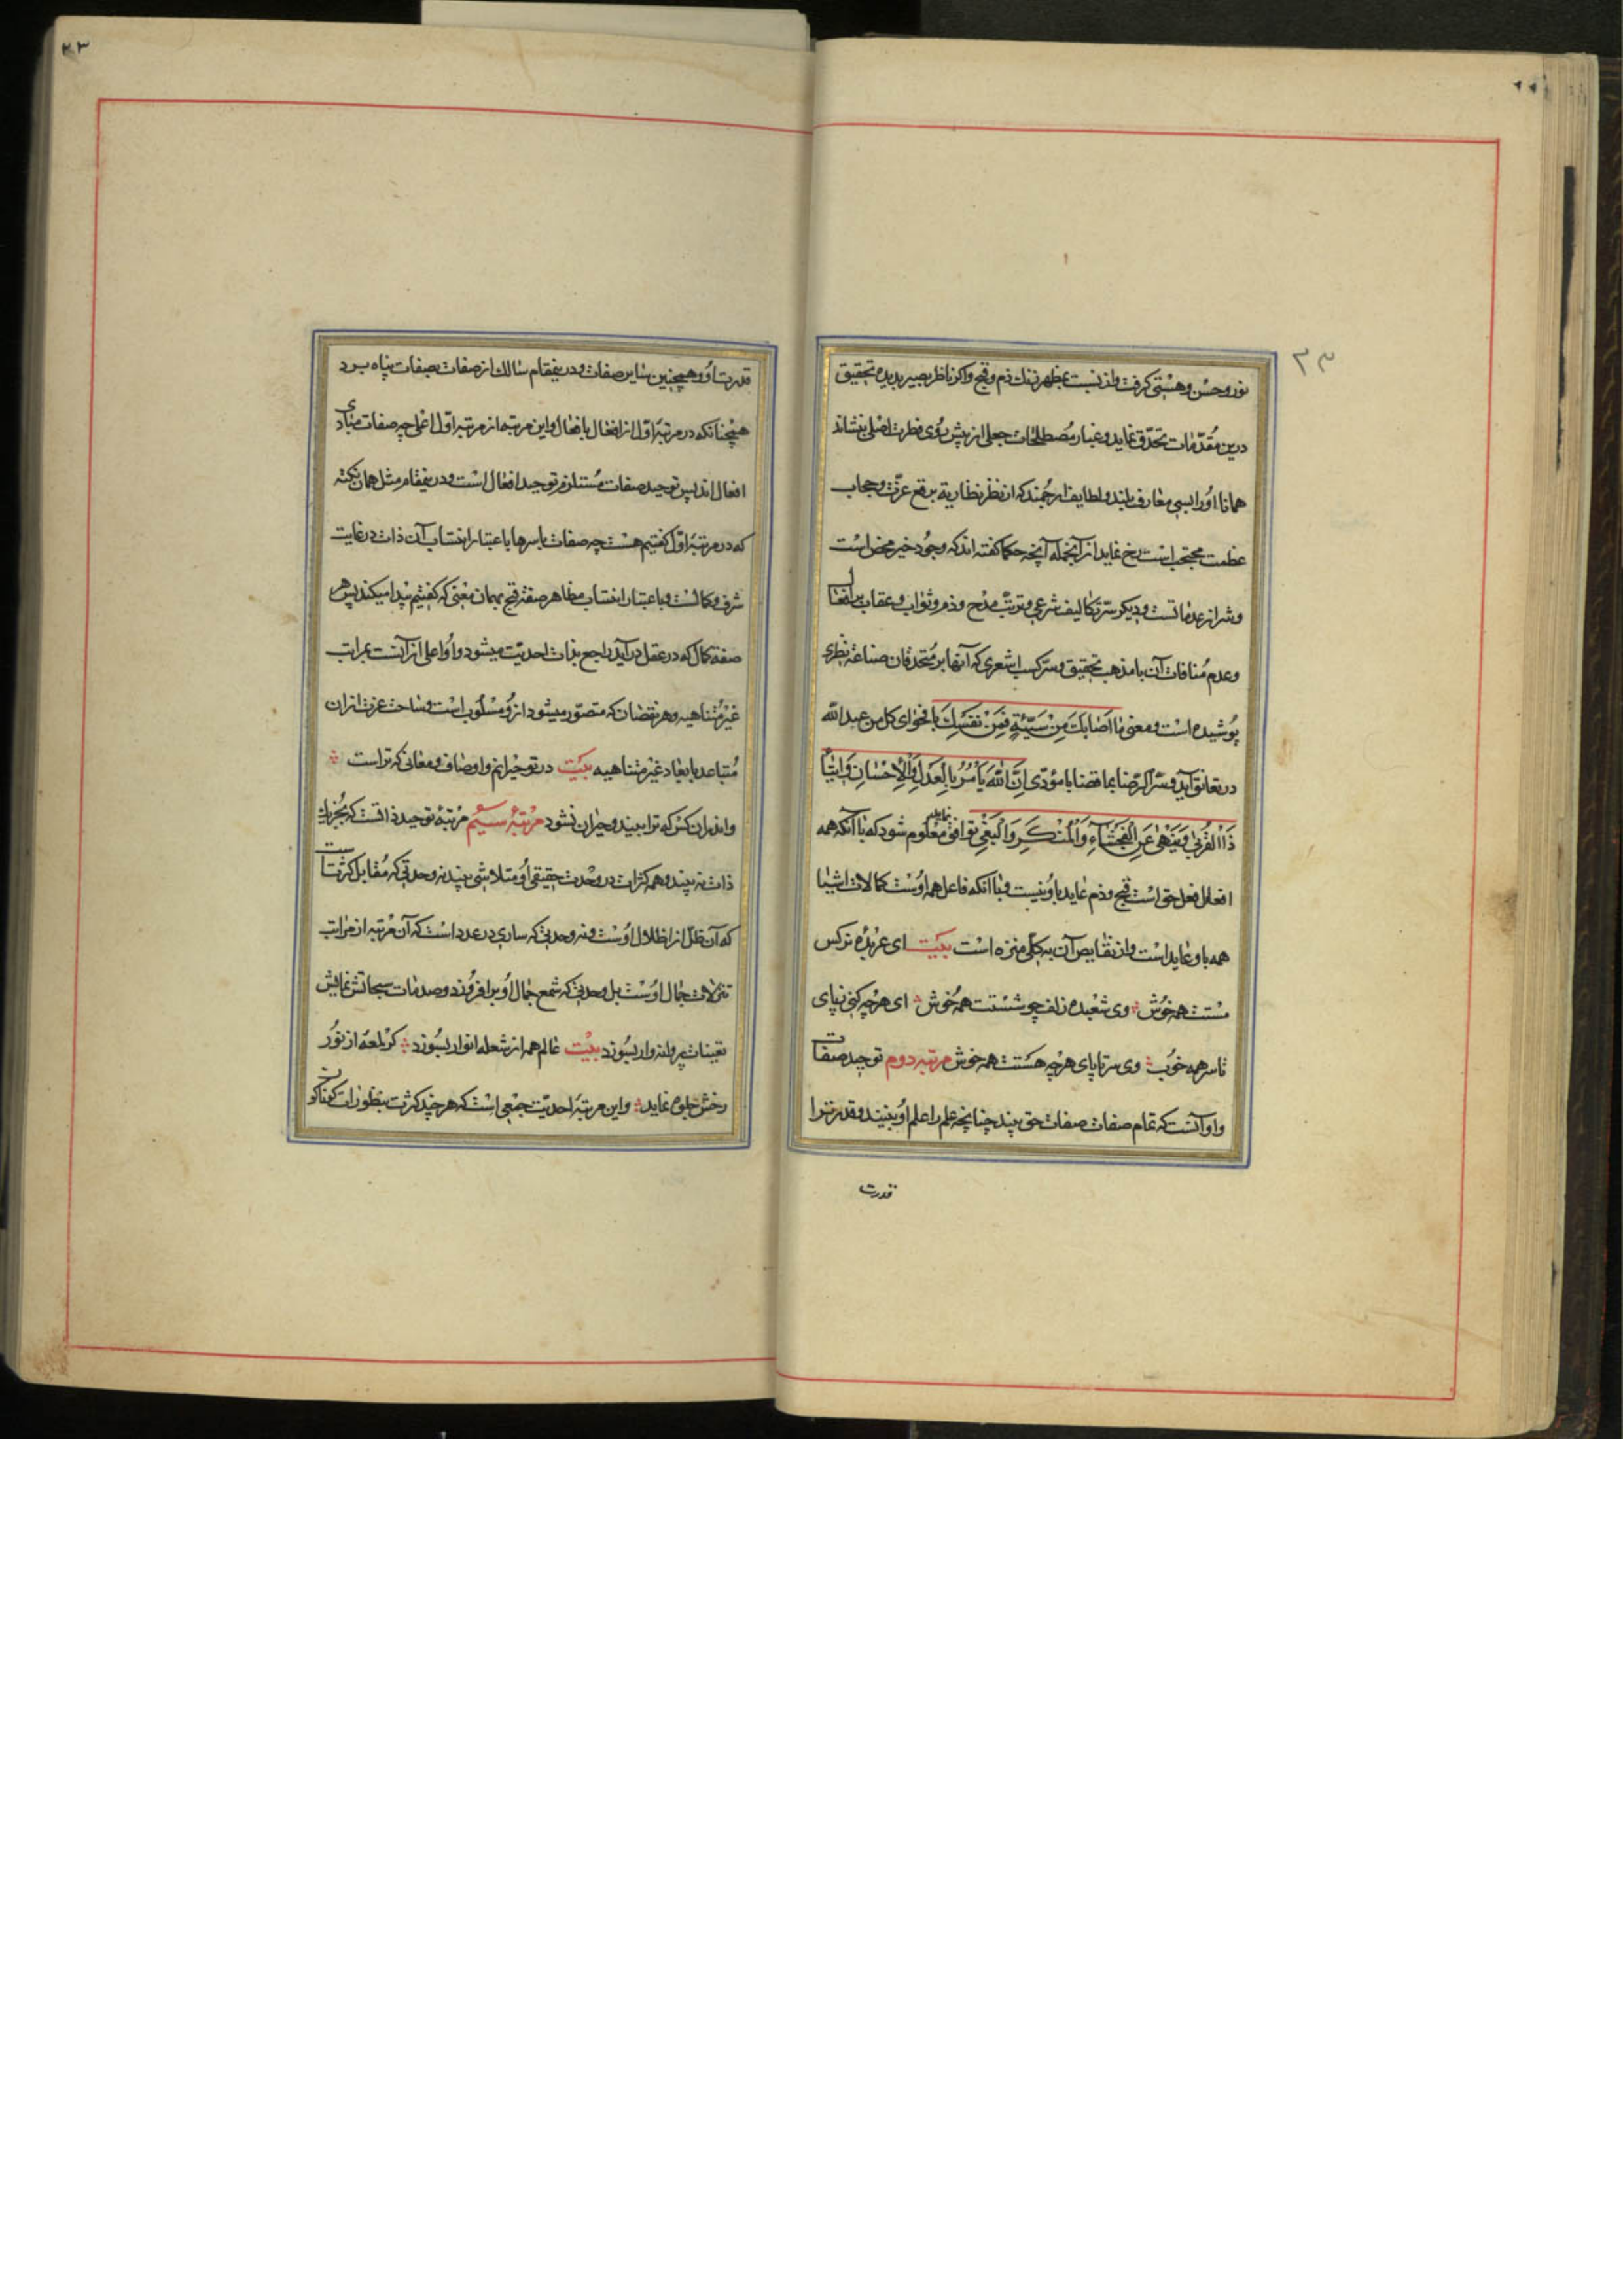 ٢٣
نور وحسن وهستی کرفت واز نسبت بمظهر رنك ذم وقبح واکر ناظر بصیر بدیده تحقیق
درین مقدمات تحدق نماید وغبار مصطلحات جعلی از پیش روی فطرت اصلی بنشاند
همانا اورا بسی معارف بلند ولطایف ارجمند که از نظر نظاریه ببرقع عزت وحجاب
عظمت محتجب است رخ نماید از آنجمله آنچه حکما کفته اند که وجود خیر محض است
وشر از عدماتست ودیکر سر تکالیف شرعی وترتب مدح وذم وثواب وعقاب بر افعال
وعدم منافات آن با مذهب تحقیق وسر کسب اشعری که آنها بر متحدقان صناعة نظری
پوشیده است ومعنی ما اصابك من سیئة فمن نفسك با فحوای کل من عند الله
در تعانق آید وسر الرضا بما قضا با مؤدی ان الله یأمر بالعدل والاحسان وایتاء
ذاالقربی وینهی عن الفحشاء والمنکر والبغی توافق نماید معلوم شود که با آنکه همه
افعال فعل حق است قبح وذم عاید باو نیست وبا آنکه فاعل همه اوست کمالات اشیا
همه باو عاید است واز نقایص آن بکلی منزه است بیت ای عربده نرکس
مستت همه خوش وی شعبده زلف چو شستت همه خوش ای هرچه کنی ز پای
تا سر همه خوب وی سر تا پای هرچه هستت همه خوش مرتبه دوم توحید صفات
واو آنست که تمام صفات صفات حق بیند چنانچه علم را علم او بیند وقدرت را
قدرت
٢٣
قدرت او وهمچنین سایر صفات ودرینمقام سالك از صفات بصفات پناه برد
همچنانکه در مرتبه اول از افعال بافعال واین مرتبه از مرتبه اول اعلی چه صفات مبادی
افعال اند پس توحید صفات مستلزم توحید افعال است ودرینمقام مثل همان نکته
که در مرتبه اول کفتیم هست چه صفات باسرها باعتبار انتساب آن ذات در غایت
شرف وکمالست وباعتبار انتساب مظاهر صفة قبح بهمان معنی که کفتیم پیدا میکند پس هر
صفة کمال که در عقل در آید راجع بذات احدیت میشود واو اعلی از آنست بمراتب
غیر متناهیه وهر نقصان که متصور میشود ازو مسلوب است وساحت عزت از ان
متباعد بابعاد غیر متناهیه بیت در تو حیرانم واوصاف ومعانی که تراست
واندران کس که ترا بیند وحیران نشود مرتبهٔ سیم مرتبهٔ توحید ذاتست که بجز یك
ذات نه بیند وهمه کثرات در وحدت حقیقی او متلاشی بیند نه وحدتی که مقابل کثرتست
که آن ظل از اظلال اوست ونه وحدتی که ساری در عدد است که آن مرتبه از مراتب
تنزلات جمال اوست بل وحدتی که شمع جمال او بر افروزد وصدمات سبحاتش نمایش
تعینات پروانه وار بسوزد بیت عالم همه از شعله انوار بسوزد کر لمعهٔ از نور
رخش جلوه نماید واین مرتبهٔ احدیت جمعی است که هر چند کثرت بتطورات کوناکون